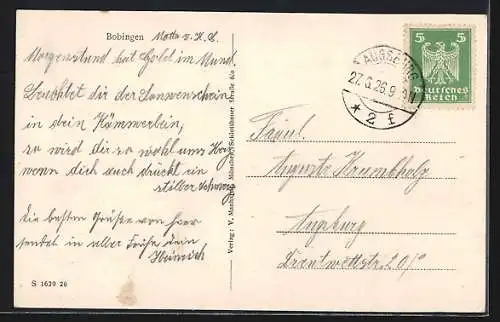 Bobingen
Morgenstund hat Gold im Mund.
Leuchtet dir der Sonnenschein
in dein Kämmerlein,
so wird dir so wohl ums Herz
wenn dich auch drückt ein
stiller Schmerz
Die besten Grüße von hier
sendet in aller Frühe dein
Heinrich
S 1639 26
Verlag: V. München
AUGSBURG
27.6.26.9
* 2 f
5 5
Deutsches
Reich
Fräul.
Augusta
Augsburg